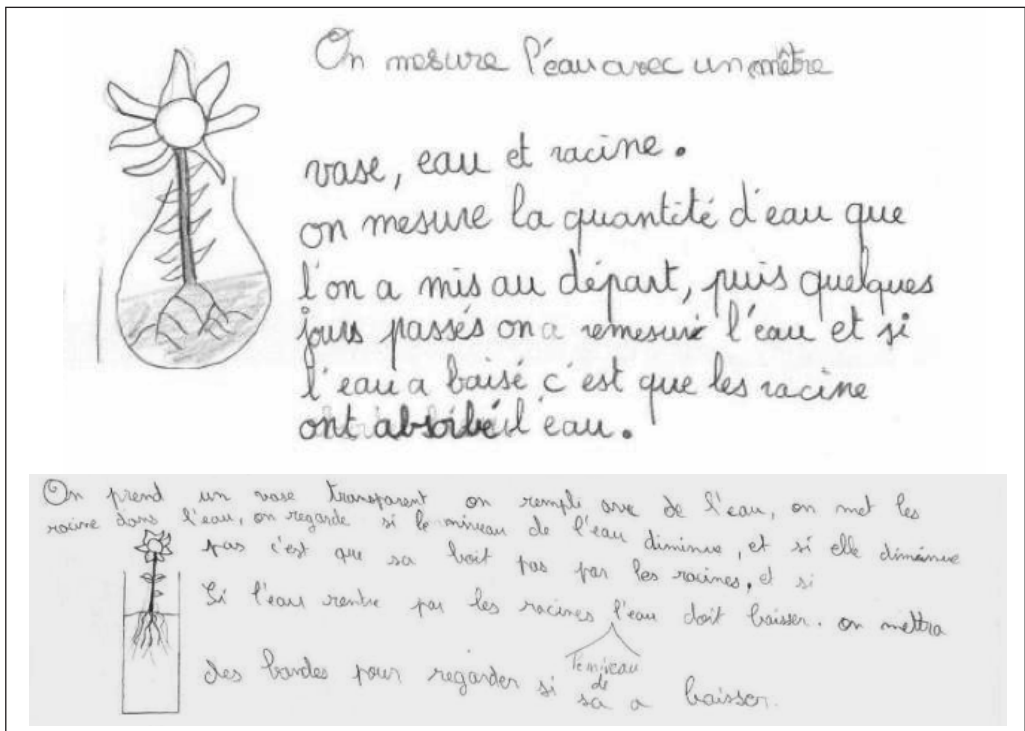 On mesure l'eau avec un mètre
vase, eau et racine.
on mesure la quantité d'eau que
l'on a mis au départ, puis quelques
jours passés on a remesuré l'eau et si
l'eau a baisé c'est que les racine
ont absorbé l'eau.
On prend un vase transparent on remple avec de l'eau, on met les
racine dans l'eau, on regarde si le niveau de l'eau diminue, et si elle diminue
pas c'est que sa boit pas par les racines, et si
Si l'eau rentre par les racines l'eau doit baisser. on mettra
le niveau
de
des bandes pour regarder si sa a baisser.